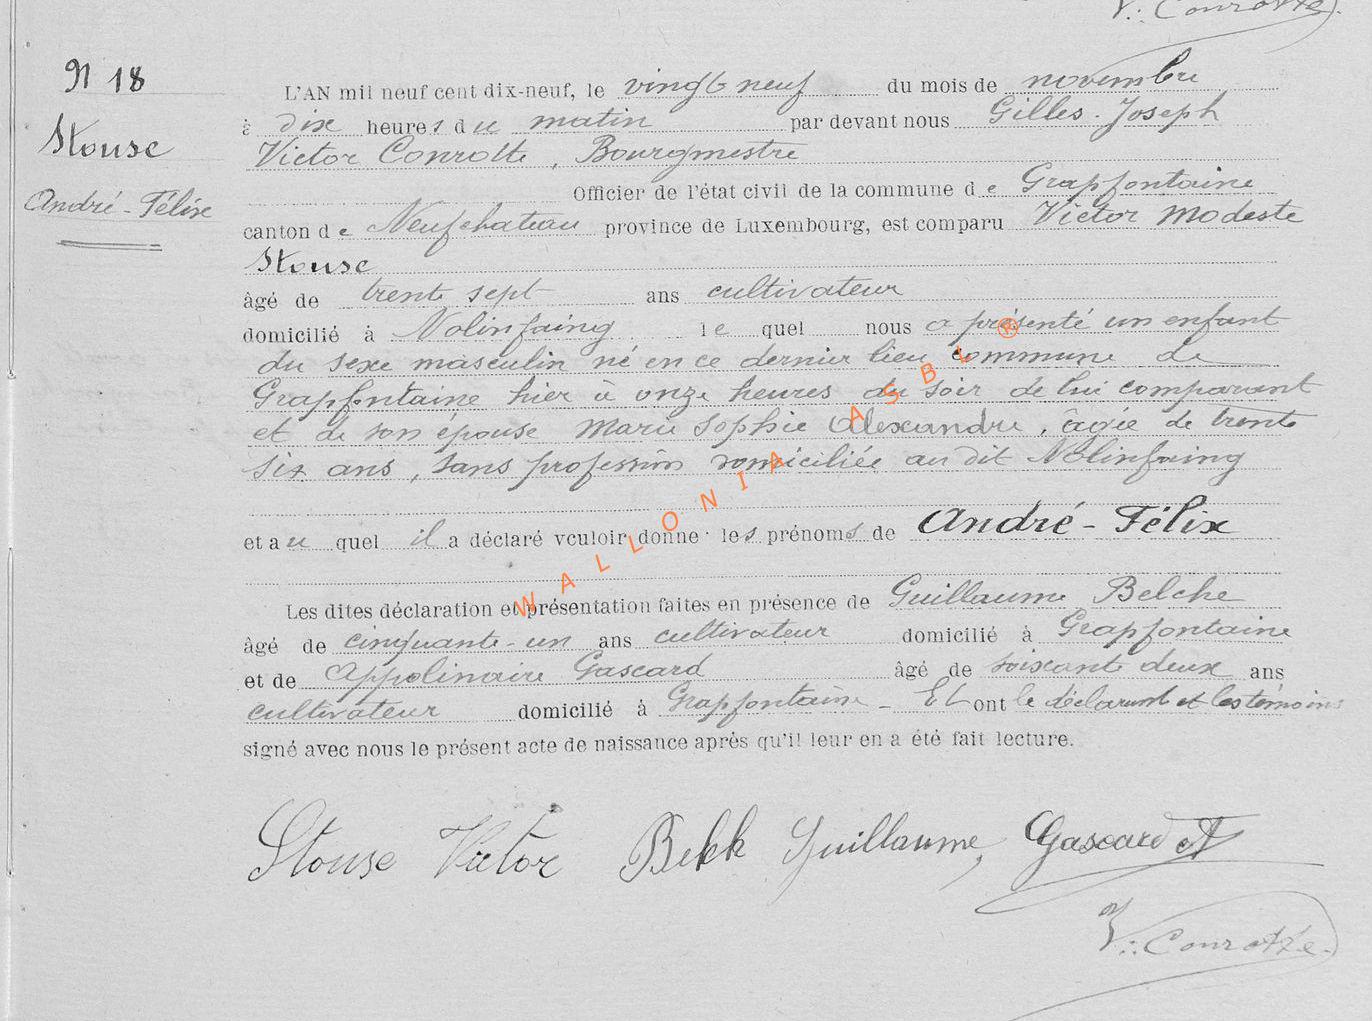 V: Conrotte
N 18
Stouse
André-Félix
L'AN mil neuf cent dix-neuf, le vingt neuf du mois de novembre
à dix heures du matin par devant nous Gilles-Joseph
Victor Conrotte, Bourgmestre
Officier de l'état civil de la commune de Grapfontaine
canton de Neufchateau province de Luxembourg, est comparu Victor Modeste
Stouse
âgé de trente sept ans cultivateur
domicilié à Nolinfaing lequel nous a présenté un enfant
du sexe masculin né en ce dernier lieu commune de
Grapfontaine hier à onze heures du soir de lui comparant
et de son épouse Marie Sophie Alexandre, âgée de trente
six ans, sans profession domiciliée au dit Nolinfaing
et au quel il a déclaré vouloir donner les prénoms de André-Félix
Les dites déclaration et présentation faites en présence de Guillaume Belche
âgé de cinquante-un ans cultivateur domicilié à Grapfontaine
et de Appolinaire Gascard âgé de soixant deux ans
cultivateur domicilié à Grapfontaine - Et ont le déclarant et les témoins
signé avec nous le présent acte de naissance après qu'il leur en a été fait lecture.
Stouse Victor Guillaume, Gascard A
V: Conrotte
WALLONIA ASBL ®